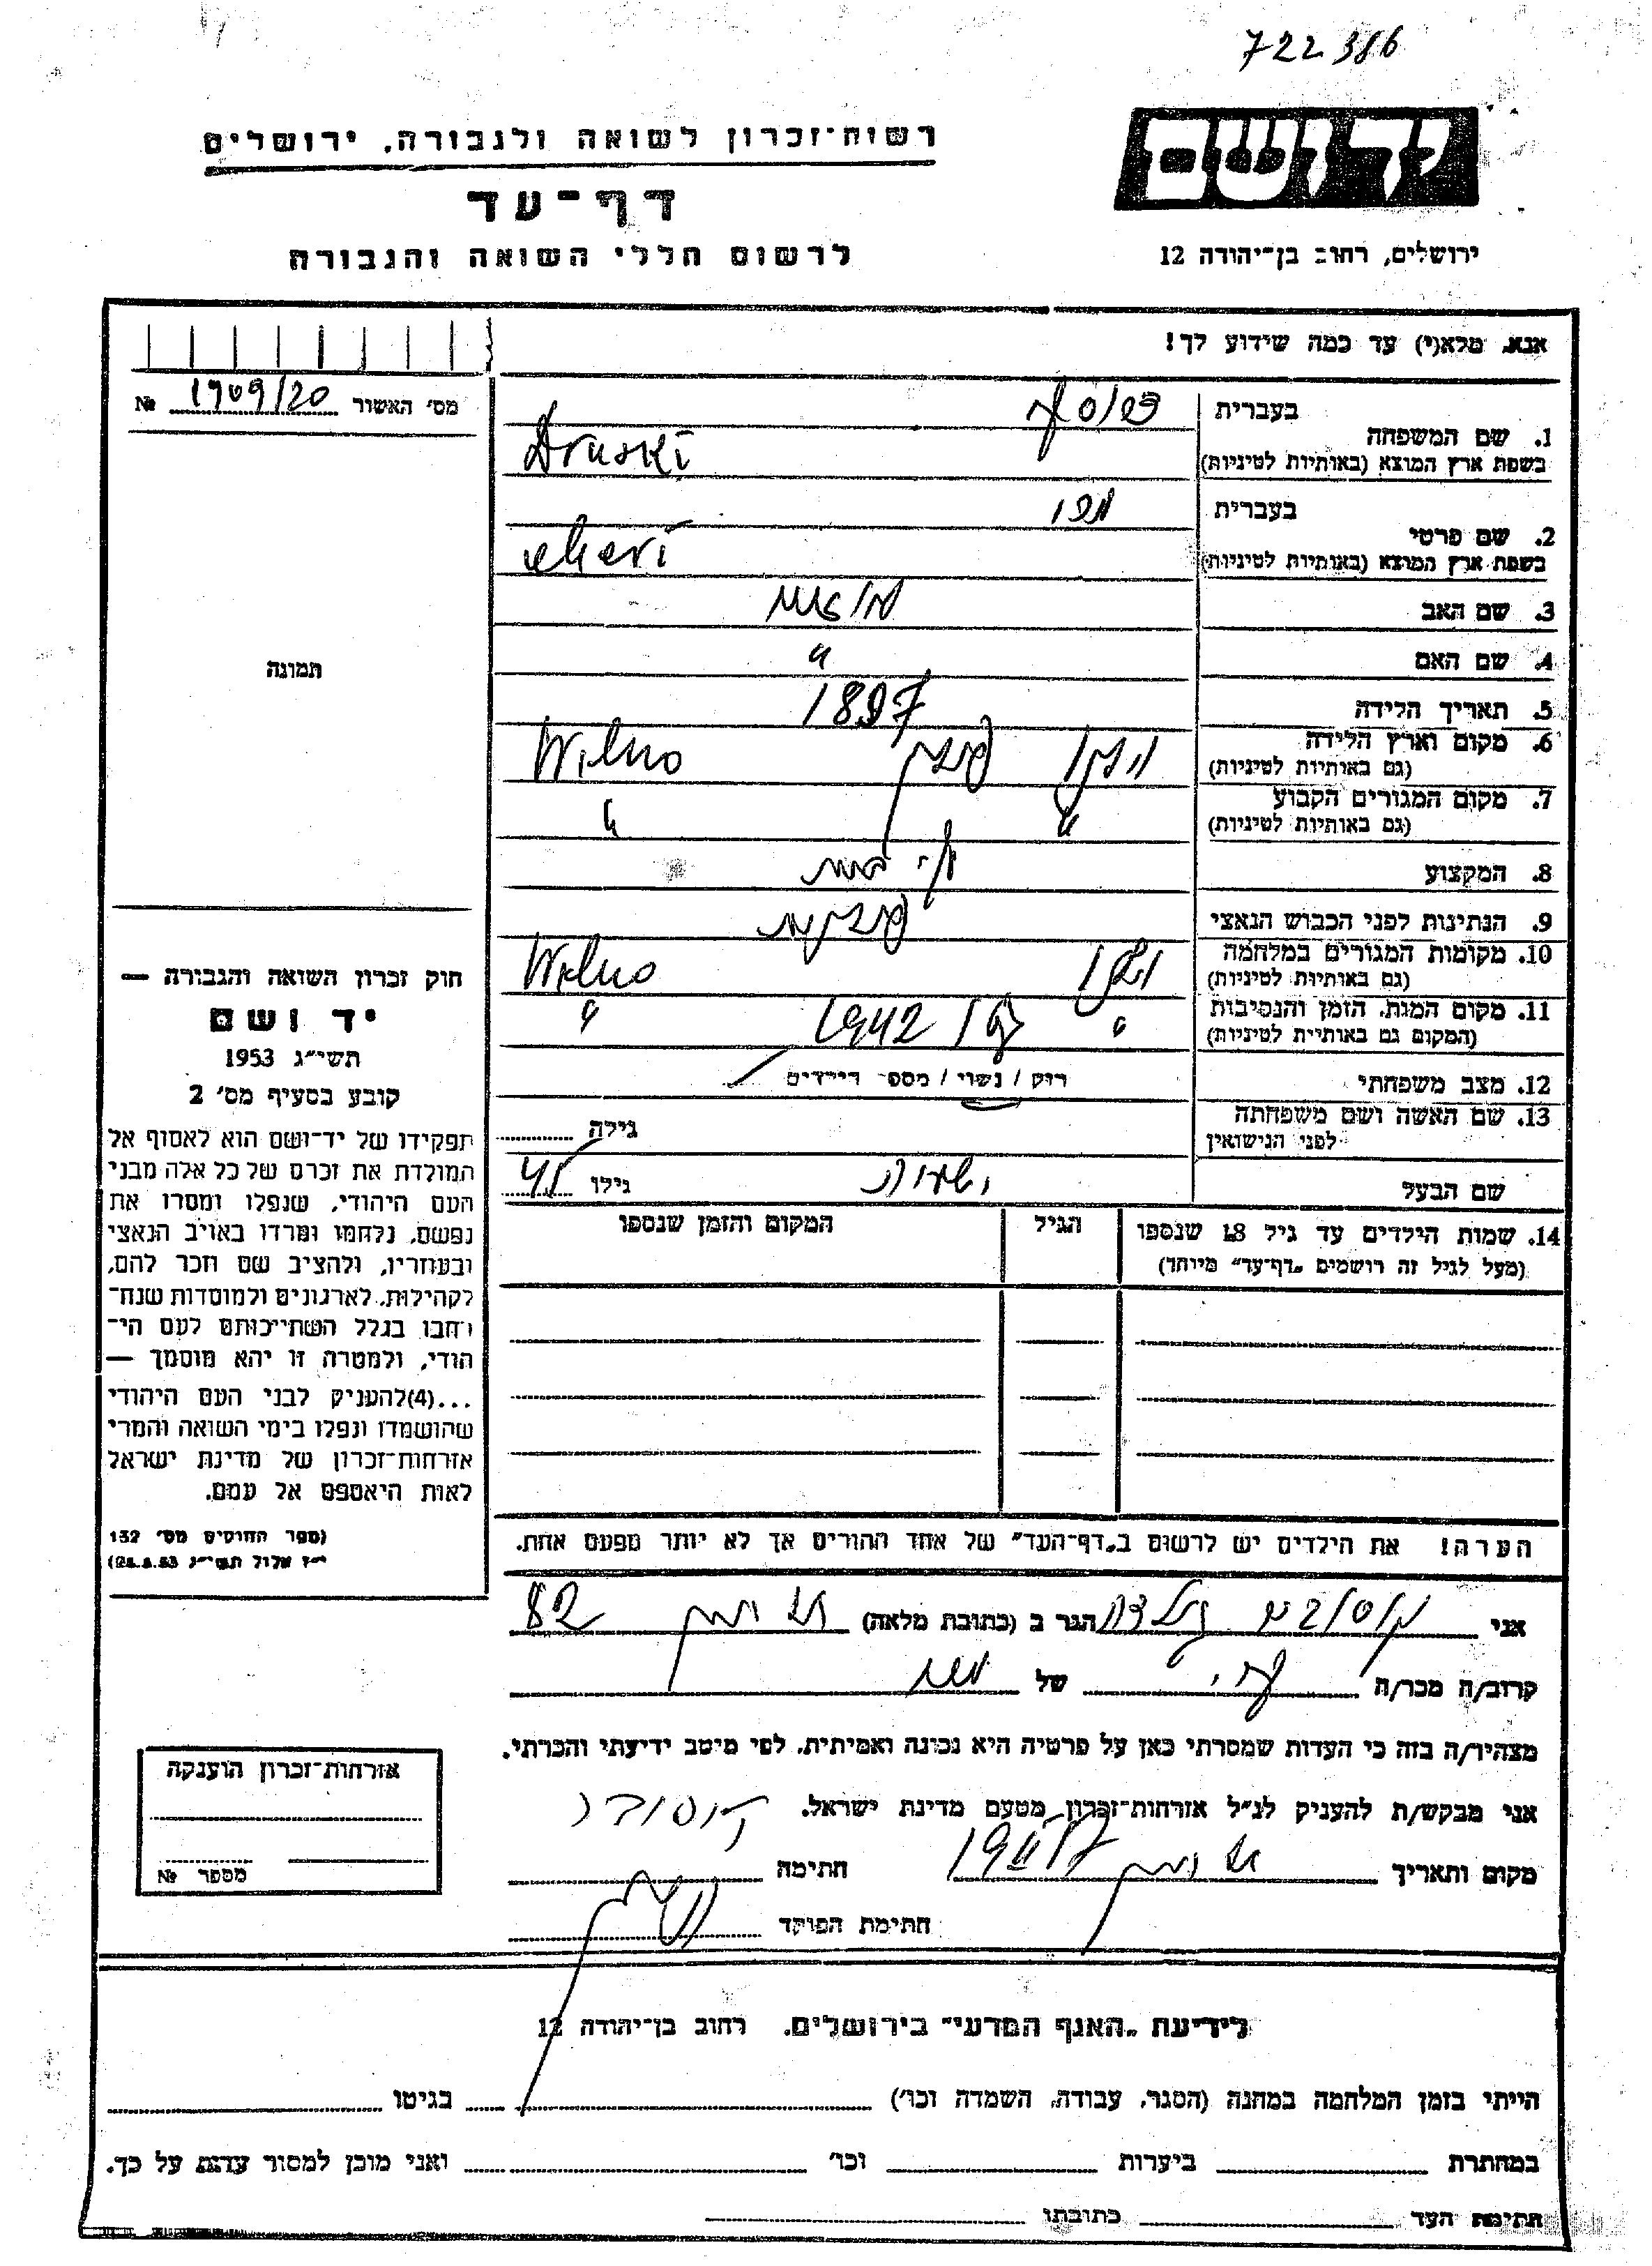 722386
יד ושם
רשות־זכרון לשואה ולגבורה, ירושלים
דף־עד
לרשום חללי השואה והגבורה
ירושלים, רחוב בן־יהודה 12
אנא, מלא(י) עד כמה שידוע לך!
מס׳ האשור 1909/20 №
תמונה
חוק זכרון השואה והגבורה —
יד ושם
תשי״ג 1953
קובע בסעיף מס׳ 2
תפקידו של יד־ושם הוא לאסוף אל
המולדת את זכרם של כל אלה מבני
העם היהודי, שנפלו ומסרו את
נפשם, נלחמו ומרדו באויב הנאצי
ובעוזריו, ולהציב שם וזכר להם,
לקהילות, לארגונים ולמוסדות שנח־
רבו בגלל השתייכותם לעם הי־
הודי, ולמטרה זו יהא מוסמך —
...(4)להעניק לבני העם היהודי
שהושמדו ונפלו בימי השואה והמרי
אזרחות־זכרון של מדינת ישראל
לאות היאספם אל עמם.
(ספר החוקים מס׳ 132
י״ז אלול תשי״ג 28.8.53)
1. שם המשפחה בעברית
בשפת ארץ המוצא (באותיות לטיניות) Druski
2. שם פרטי בעברית
בשפת ארץ המוצא (באותיות לטיניות)
3. שם האב
4. שם האם "
5. תאריך הלידה 1897
6. מקום וארץ הלידה
(גם באותיות לטיניות) וילנה פולין Wilno
7. מקום המגורים הקבוע
(גם באותיות לטיניות) " "
8. המקצוע
9. הנתינות לפני הכבוש הנאצי פולנית
10. מקומות המגורים במלחמה
(גם באותיות לטיניות) Wilno
11. מקום המות, הזמן והנסיבות
(המקום גם באותיות לטיניות) " 1942 "
12. מצב משפחתי רוק / נשוי / מספר הילדים
13. שם האשה ושם משפחתה
לפני הנישואין גילה
שם הבעל גילו 45
14. שמות הילדים עד גיל 18 שנספו הגיל המקום והזמן שנספו
(מעל לגיל זה רושמים „דף־עד״ מיוחד)
הערה! את הילדים יש לרשום ב„דף־העד״ של אחד ההורים אך לא יותר מפעם אחת.
אני הגר ב (כתובת מלאה) 82
קרוב/ה מכר/ה של
מצהיר/ה בזה כי העדות שמסרתי כאן על פרטיה היא נכונה ואמיתית, לפי מיטב ידיעתי והכרתי.
אני מבקש/ת להעניק לנ״ל אזרחות־זכרון מטעם מדינת ישראל.
מקום ותאריך חתימה
חתימת הפוקד
אזרחות־זכרון הוענקה
מספר №
לידיעת „האגף המדעי״ בירושלים. רחוב בן־יהודה 12
הייתי בזמן המלחמה במחנה (הסגר, עבודה, השמדה וכו׳) בגיטו
במחתרת ביערות וכו׳ ואני מוכן למסור עדות על כך.
חתימת העד כתובתו